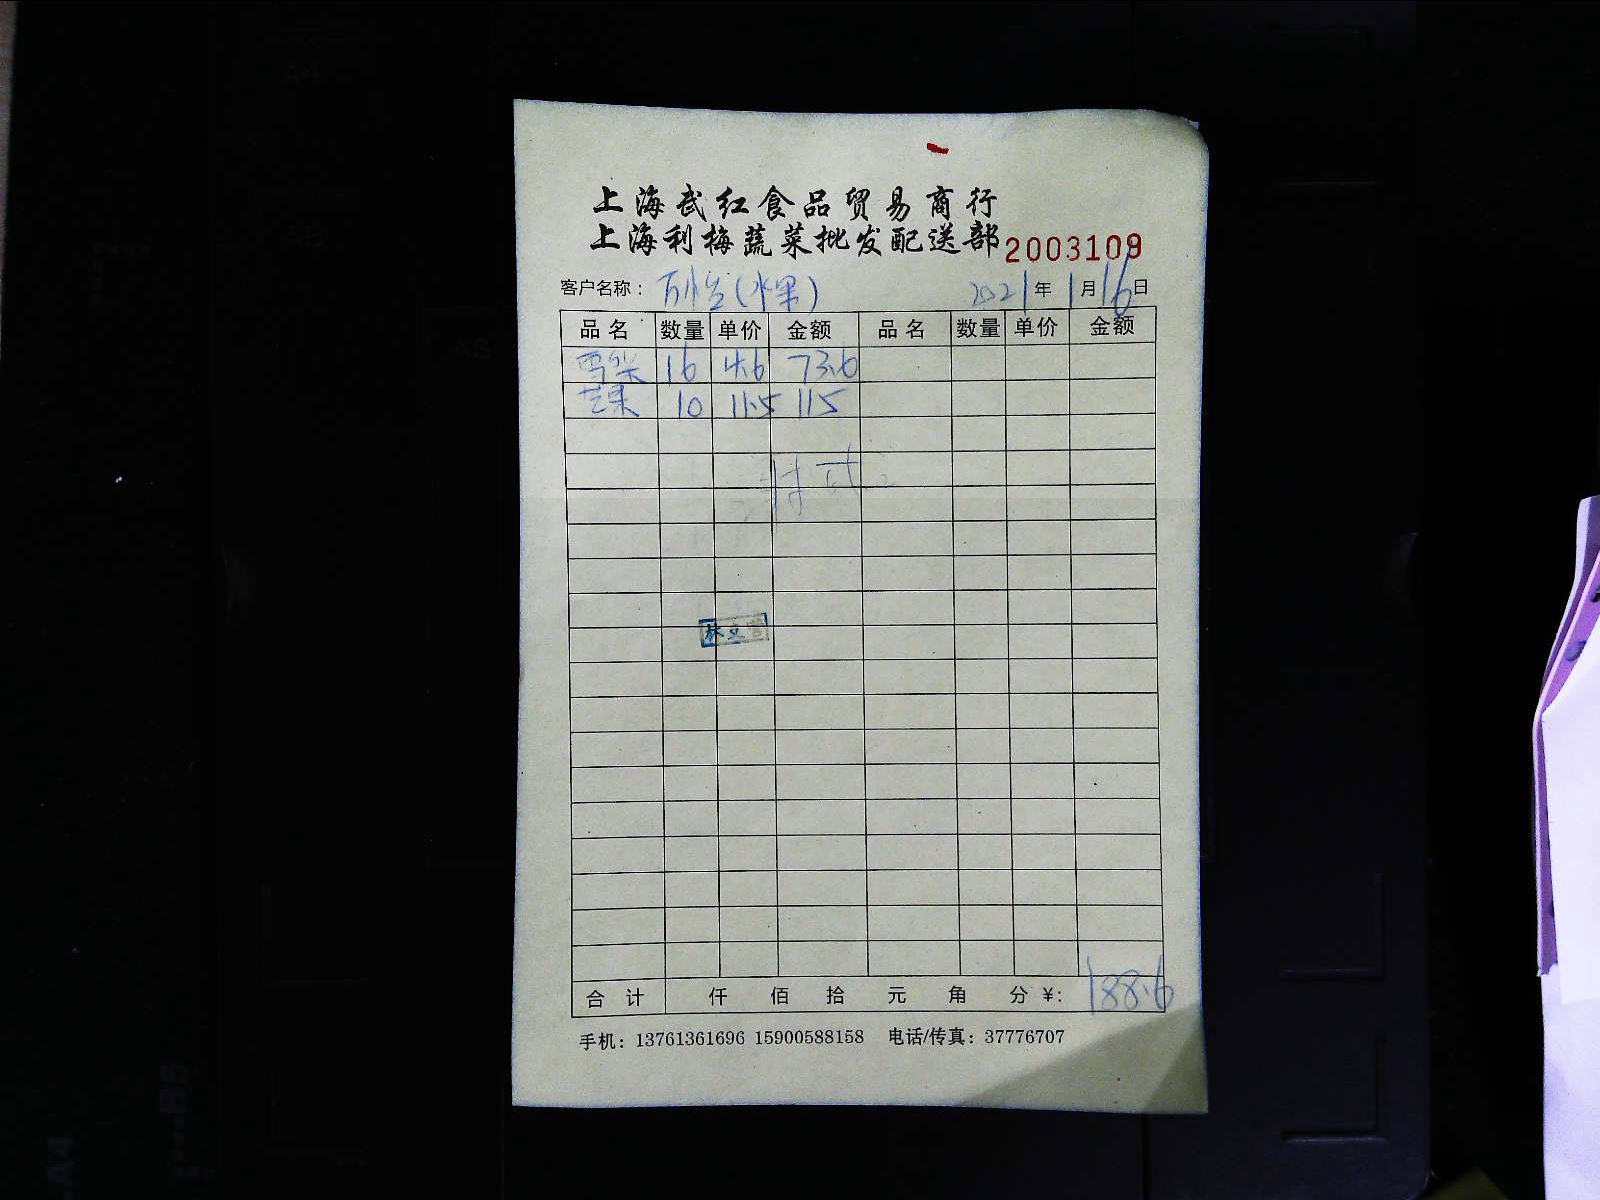 上海武红食品贸易商行
上海利梅蔬菜批发配送部 2003109
客户名称： (水果) 2021年1月16日
品名 数量 单价 金额 品名 数量 单价 金额
雪梨 16 4.6 73.6
芒果 10 11.5 115
合计 仟 佰 拾 元 角 分 ¥: 188.6
手机：13761361696 15900588158 电话/传真：37776707